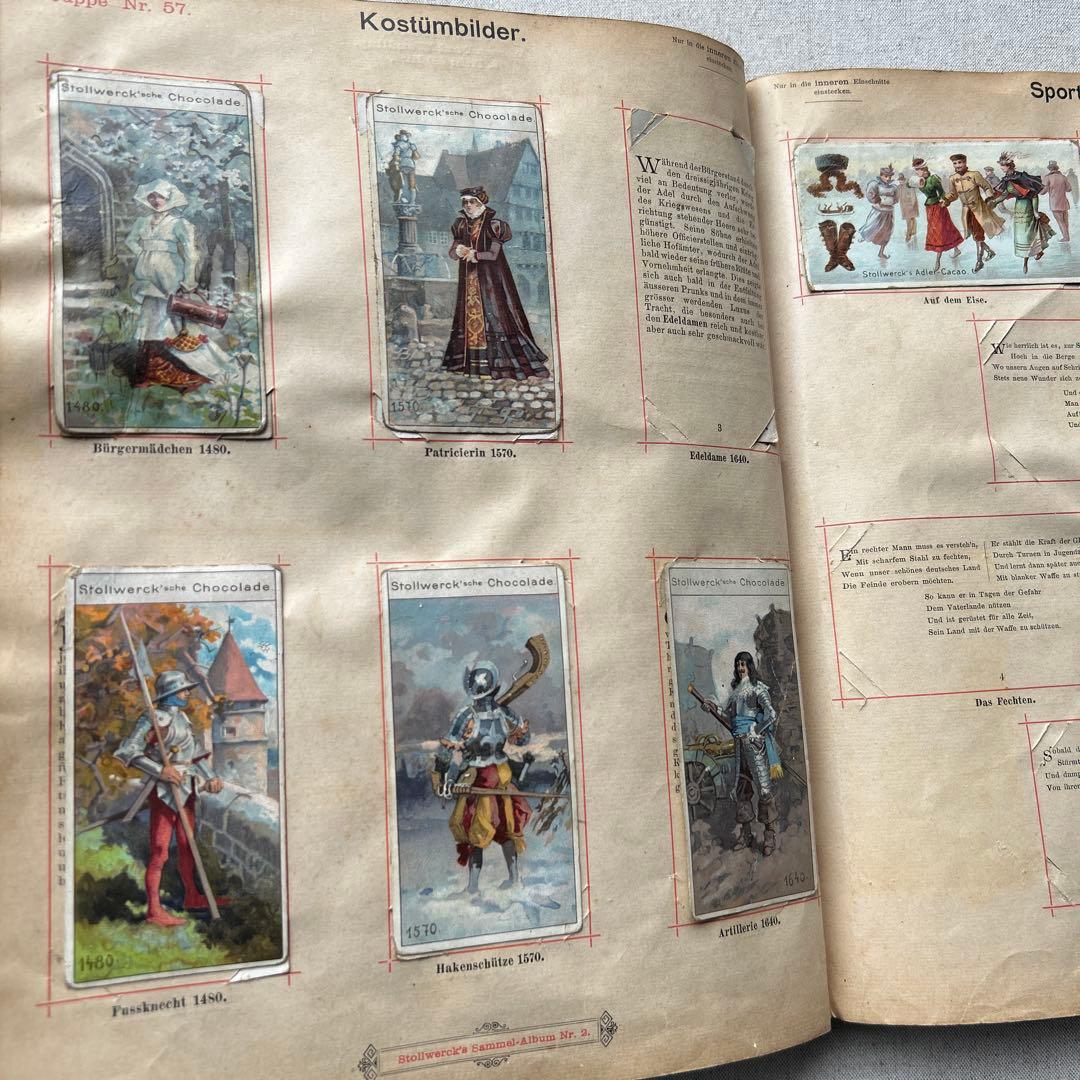 Nr. 57.
Kostümbilder.
Nur in die inneren
einstecken.
Stollwerck'sche Chocolade.
1480.
Bürgermädchen 1480.
Stollwerck'sche Chocolade
1570.
Patricierin 1570.
Während der Bürgerstand
den dreissigjährigen
viel an Bedeutung verlor,
der Adel durch den
des Kriegswesens und die
richtung stehender Heere
günstigt. Seine Söhne
höhere Officierstellen und
liche Hofämter, wodurch der
bald wieder seine frühere
Vornehmheit erlangte.
sich auch bald in der
äusseren Prunks und in dem
grösser werdenden
Tracht, die besonders auch
den Edeldamen reich und
aber auch sehr geschmackvoll
3
Edeldame 1640.
Stollwerck'sche Chocolade
1480
Fussknecht 1480.
Stollwerck'sche Chocolade.
1570
Hakenschütze 1570.
Stollwerck'sche Chocolade
1640.
Artillerie 1640.
Stollwerck's Sammel-Album Nr. 2.
Nur in die inneren Einschnitte
einstecken.
Sport
Stollwerck's Adler-Cacao.
Auf dem Eise.
Wie herrlich ist es, zur
Hoch in die Berge
Wo unsern Augen auf
Stets neue Wunder sich
Und
Man
Auf
Und
Ein rechter Mann muss es versteh'n,
Mit scharfem Stahl zu fechten,
Wenn unser schönes deutsches Land
Die Feinde erobern möchten.
Er stählt die Kraft der
Durch Turnen in
Und lernt dann später
Mit blanker Waffe zu
So kann er in Tagen der Gefahr
Dem Vaterlande nützen
Und ist gerüstet für alle Zeit,
Sein Land mit der Waffe zu schützen.
4
Das Fechten.
Sobald
Und
Von ihren